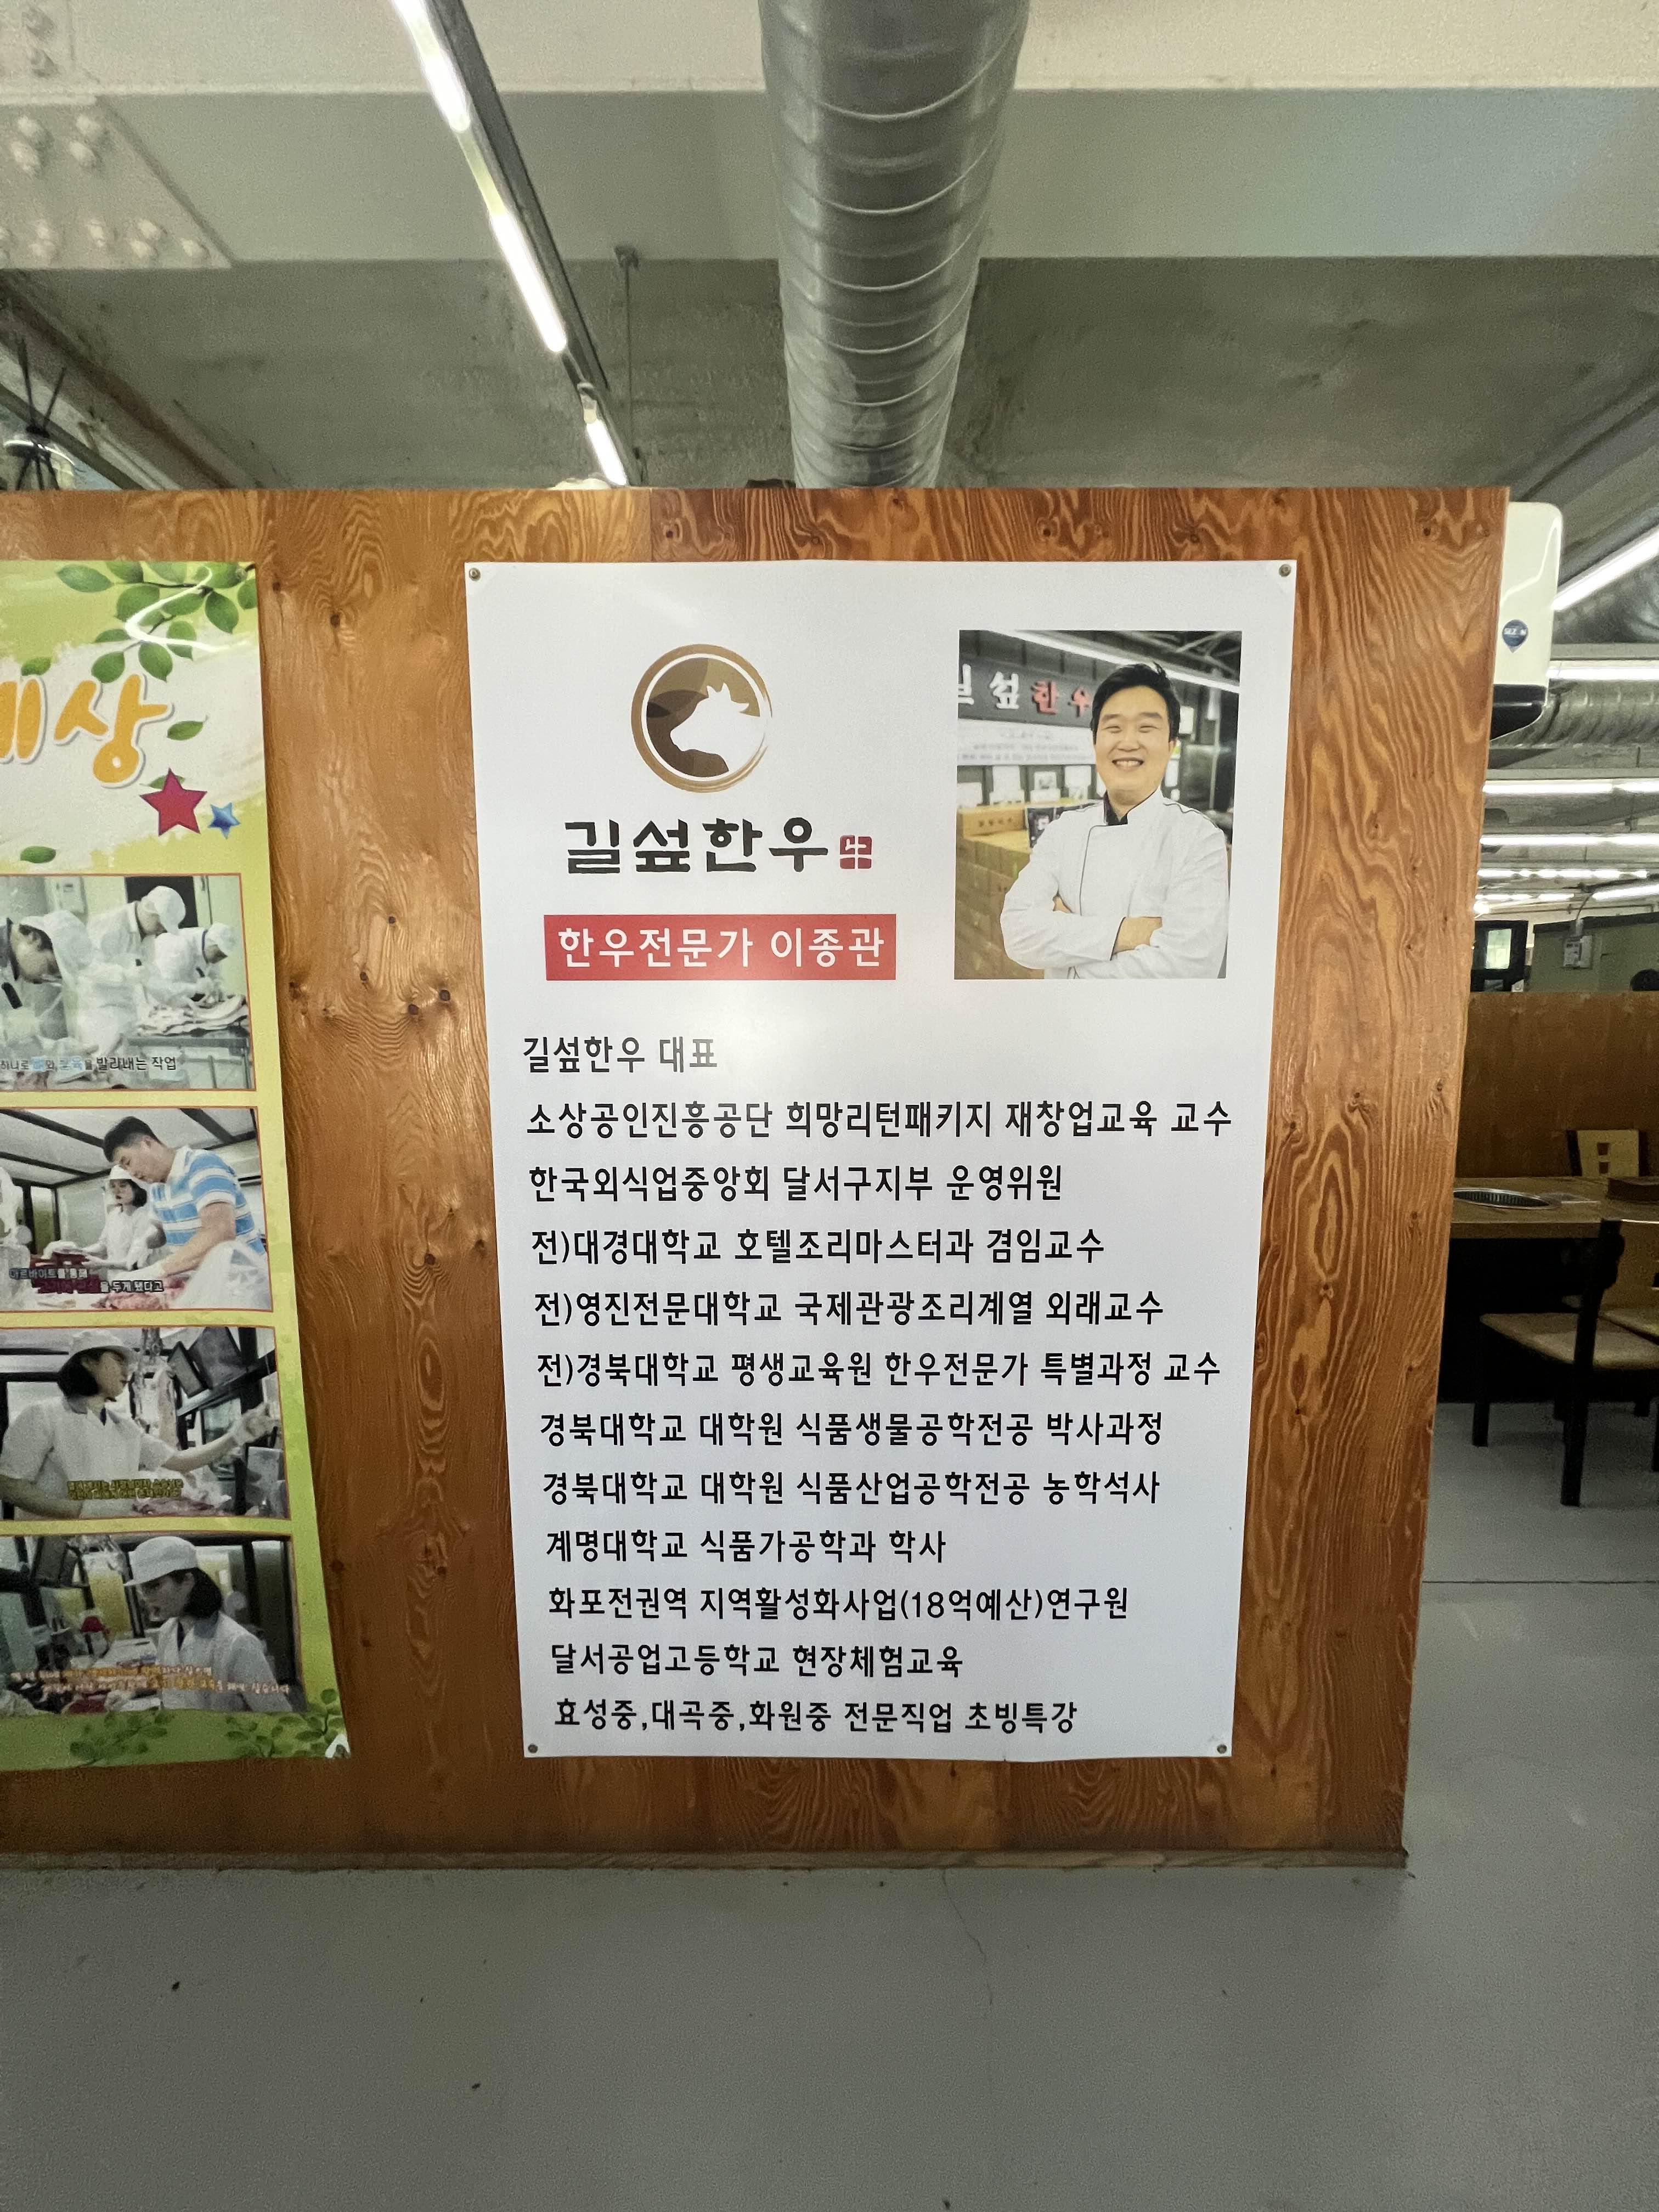 세상
발라내는 작업
을 두게 됐다고
길섶한우
한우전문가 이종관
길섶한우 대표
소상공인진흥공단 희망리턴패키지 재창업교육 교수
한국외식업중앙회 달서구지부 운영위원
전)대경대학교 호텔조리마스터과 겸임교수
전)영진전문대학교 국제관광조리계열 외래교수
전)경북대학교 평생교육원 한우전문가 특별과정 교수
경북대학교 대학원 식품생물공학전공 박사과정
경북대학교 대학원 식품산업공학전공 농학석사
계명대학교 식품가공학과 학사
화포전권역 지역활성화사업(18억예산)연구원
달서공업고등학교 현장체험교육
효성중,대곡중,화원중 전문직업 초빙특강
섶한우